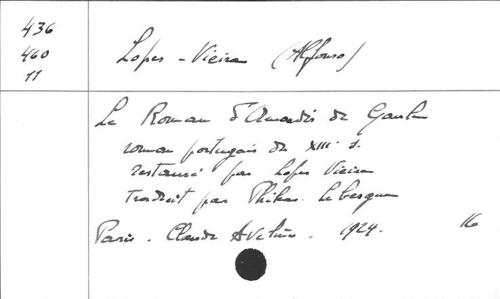 436
460
11
Lopes-Vieira (Alfonso)
Le Roman d'Amadis de Gaule
roman portugais du XIIIe s.
restauré par Lopes Vieira
traduit par Philéas Lebesgue
Paris. Claude Aveline. 1924. 16